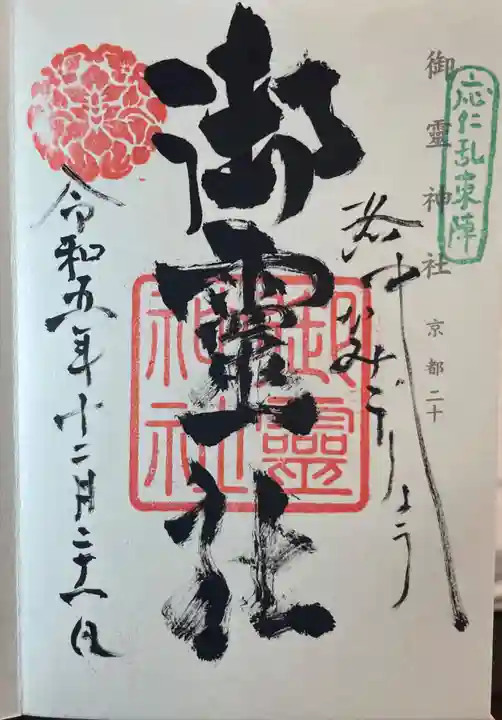 応仁乱東陣
御靈神社 京都二十
洛中かみごりょう
御靈社
御靈神社
令和五年十二月二十日